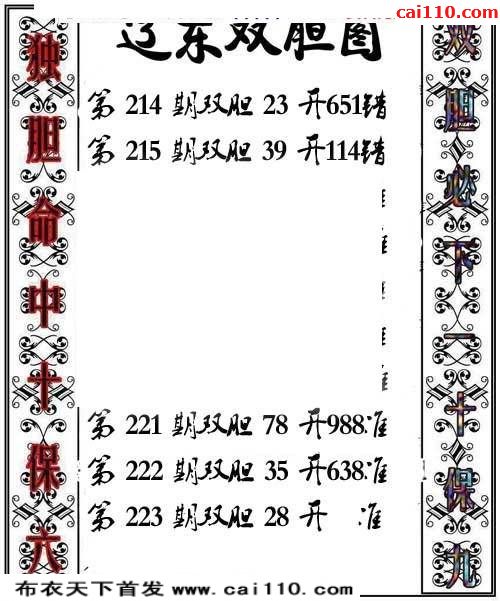 cai110.com
辽东双胆图
独胆命中十保六
双胆必下一十保九
第 214 期双胆 23 开651错
第 215 期双胆 39 开114错
第 221 期双胆 78 开988准
第 222 期双胆 35 开638准
第 223 期双胆 28 开 准
布衣天下首发 www.cai110.com